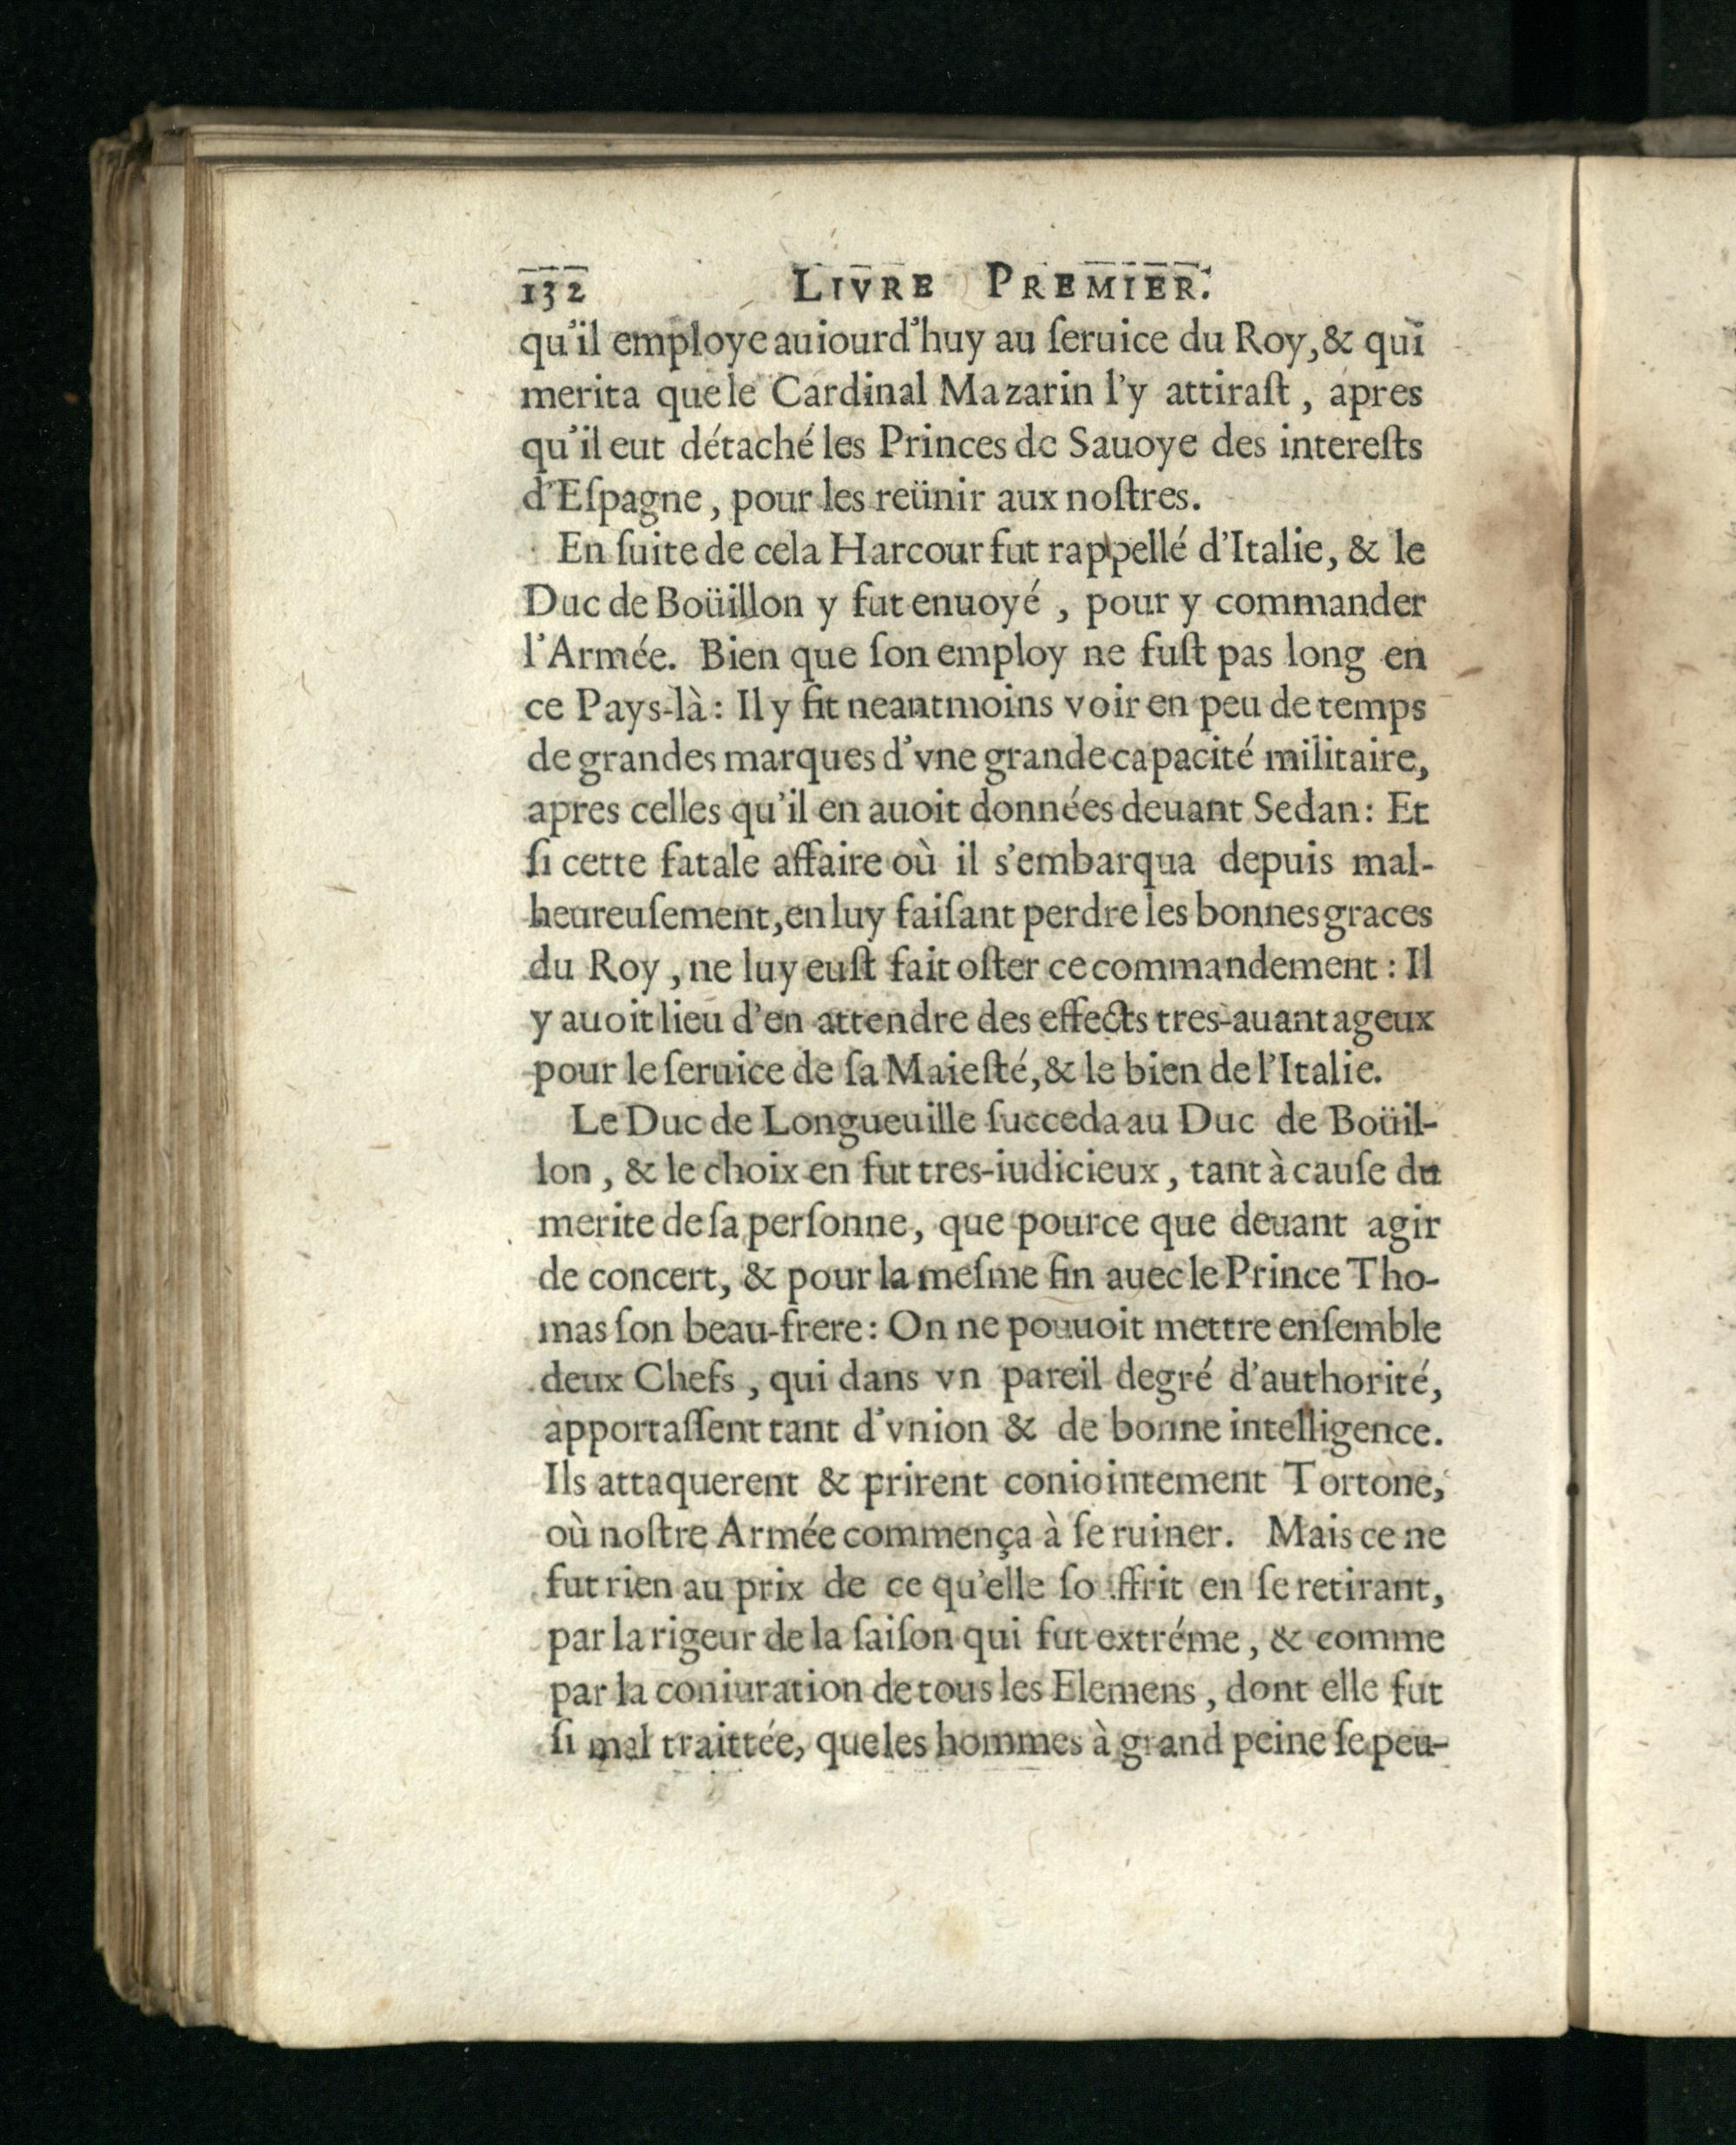 132 LIVRE PREMIER.
qu'il employe auiourd'huy au ſeruice du Roy, & qui
merita que le Cardinal Mazarin l'y attiraſt, apres
qu'il eut détaché les Princes de Sauoye des intereſts
d'Eſpagne, pour les reünir aux noſtres.
En ſuite de cela Harcour fut rappellé d'Italie, & le
Duc de Boüillon y fut enuoyé, pour y commander
l'Armée. Bien que ſon employ ne fuſt pas long en
ce Pays-là: Il y fit neantmoins voir en peu de temps
de grandes marques d'vne grande capacité militaire,
apres celles qu'il en auoit données deuant Sedan: Et
ſi cette fatale affaire où il s'embarqua depuis mal-
heureuſement, en luy faiſant perdre les bonnes graces
du Roy, ne luy euſt fait oſter ce commandement: Il
y auoit lieu d'en attendre des effects tres-auantageux
pour le ſeruice de ſa Maieſté, & le bien de l'Italie.
Le Duc de Longueuille ſucceda au Duc de Boüil-
lon, & le choix en fut tres-iudicieux, tant à cauſe du
merite de ſa perſonne, que pource que deuant agir
de concert, & pour la meſme fin auec le Prince Tho-
mas ſon beau-frere: On ne pouuoit mettre enſemble
deux Chefs, qui dans vn pareil degré d'authorité,
apportaſſent tant d'vnion & de bonne intelligence.
Ils attaquerent & prirent coniointement Tortone,
où noſtre Armée commença à ſe ruiner. Mais ce ne
fut rien au prix de ce qu'elle ſouffrit en ſe retirant,
par la rigeur de la ſaiſon qui fut extréme, & comme
par la coniuration de tous les Elemens, dont elle fut
ſi mal traittée, que les hommes à grand peine ſe peu-